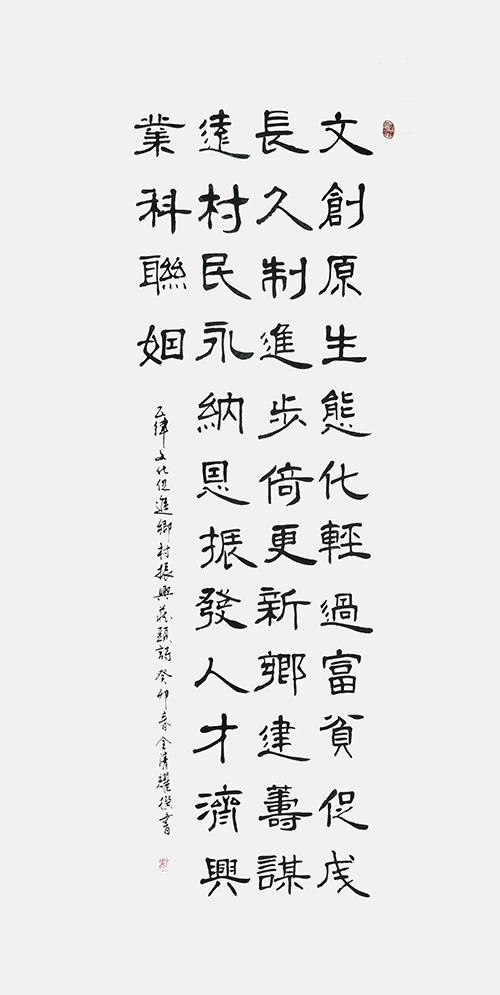 文創原生態化輕過富貧促成
長久制進步倚更新鄉建籌謀
遠村民永納恩振發人才濟興
業科聯姻
五律文化促進鄉村振興藏頭詩癸卯春全清耀撰書